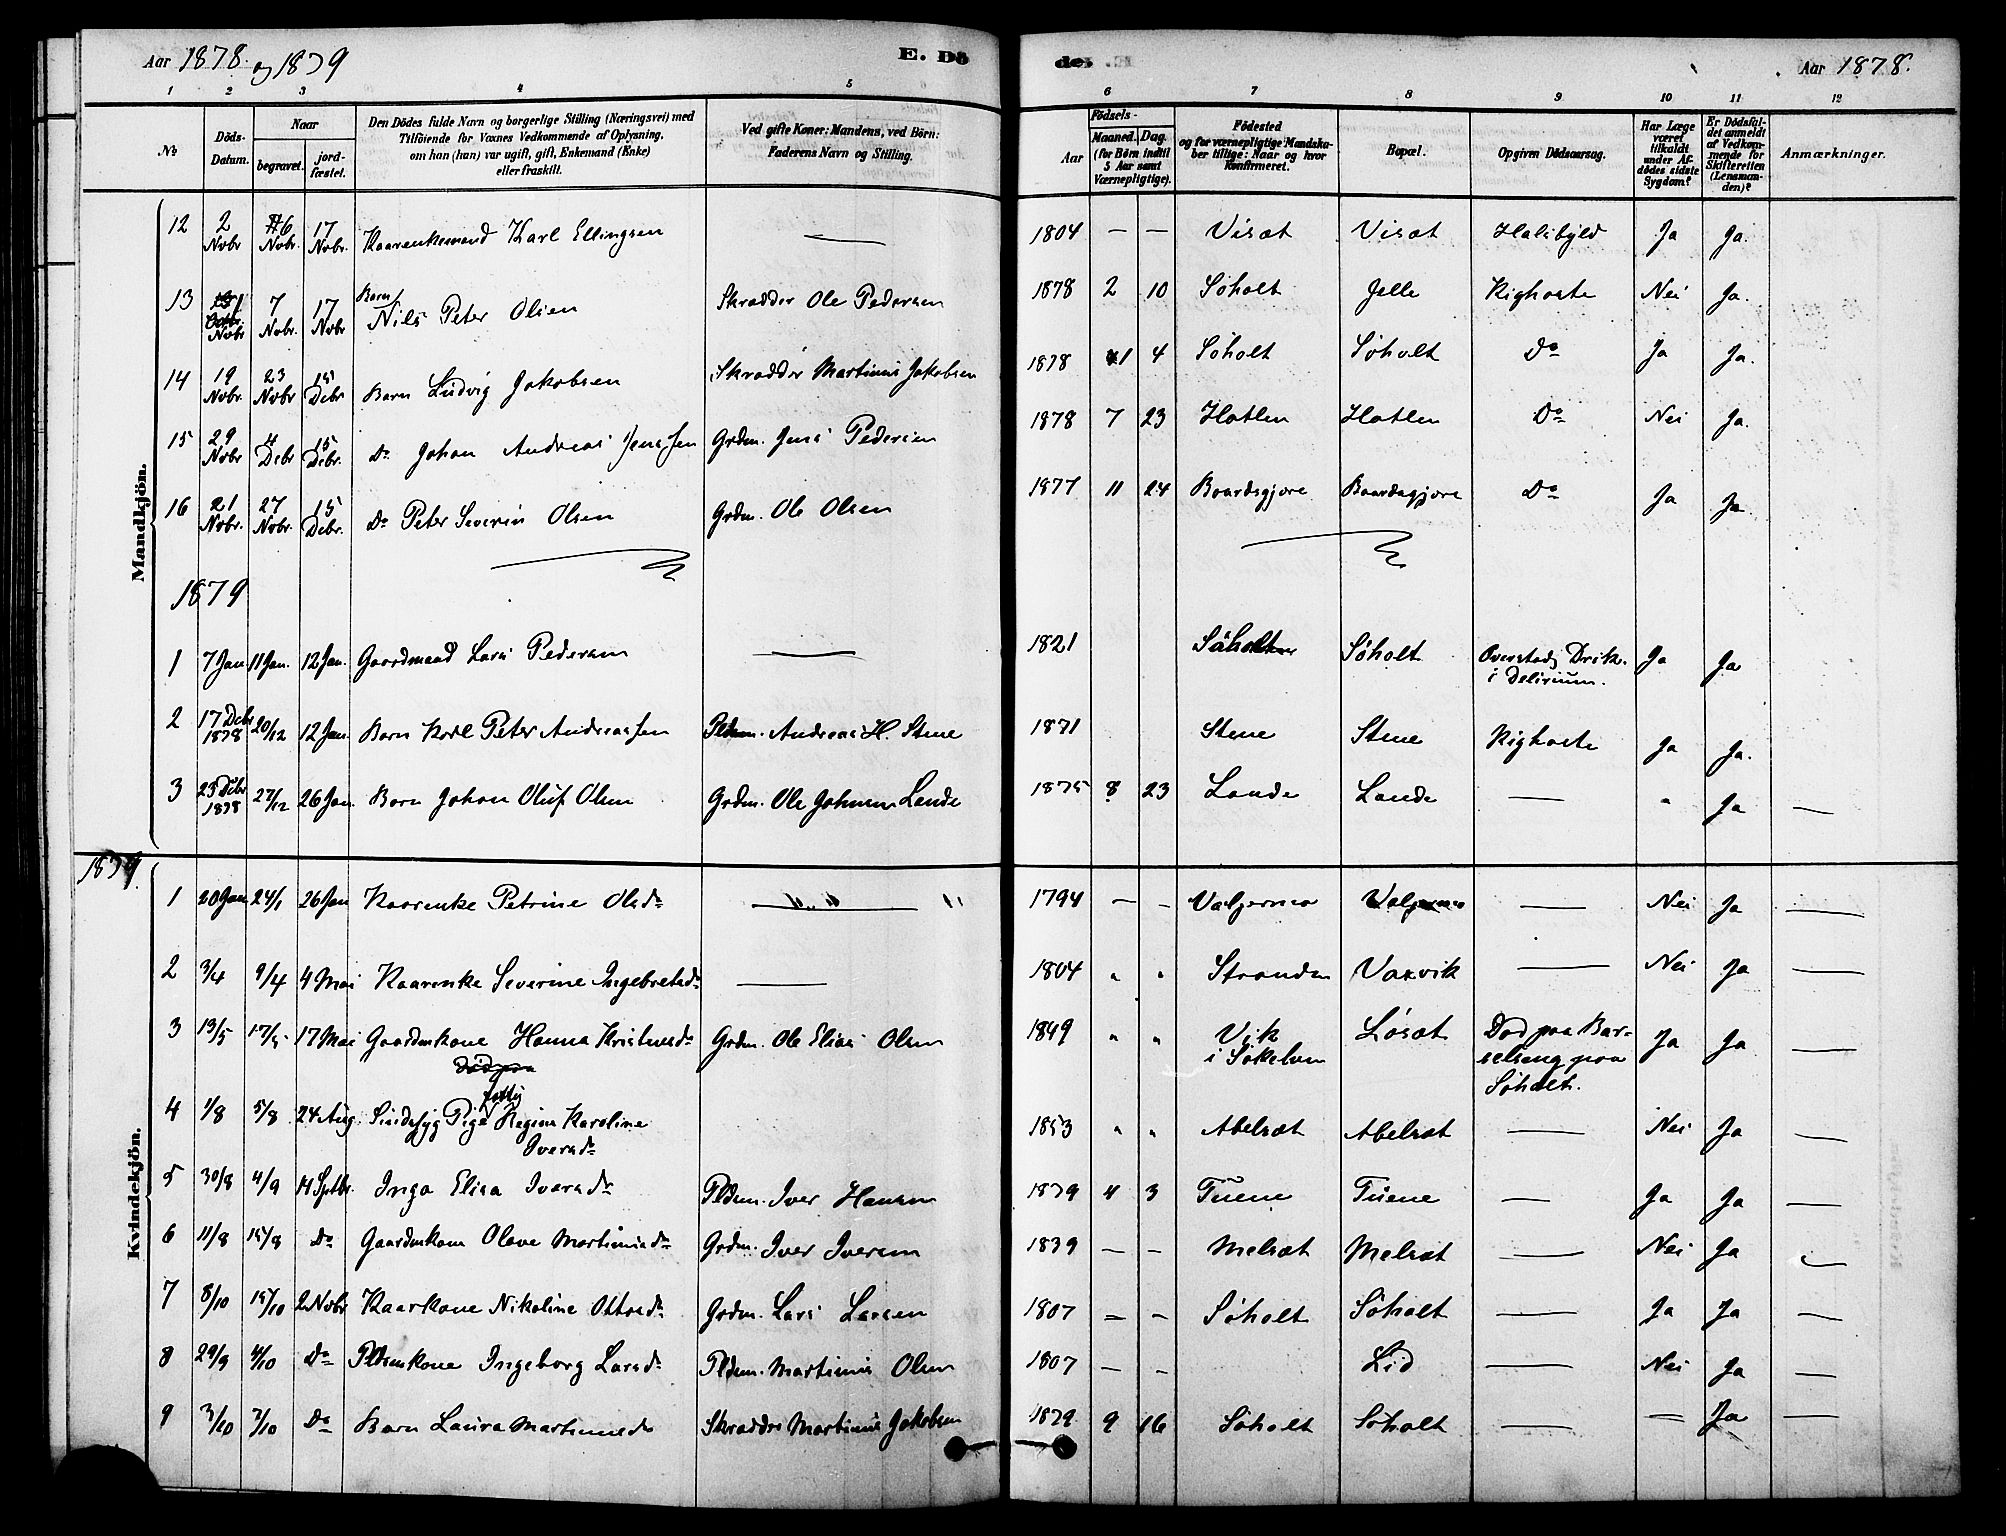 Aar 1878. og 1879
E. Dö
de. E
Aar 1878.
1 2 3 4 5 6 7 8 9 10 11 12
No
Döds-Datum.
Naar
begravet.
jordfæstet.
Den Dödes fulde Navn og borgerlige Stilling (Næringsvei) med
Tilföiende for Voxnes Vedkommende af Oplysning,
om han (hun) var ugift, gift, Enkemand (Enke)
eller fraskilt.
Ved gifte Koner: Mandens, ved Börn:
Faderens Navn og Stilling.
Födsels-
Aar
Maaned. Dag.
(for Börn indtil
5 Aar samt
Værnepligtige).
Födested
og for værnepligtige Mandskaber tillige: Naar og hvor
konfirmeret.
Bopæl.
Opgiven Dödsaarsag.
Har Læge
været
tilkaldt
under Afdödes sidste
Sygdom?
Er Dödsfaldet anmeldt
af Vedkommende for
Skifteretten
(Lensmanden)?
Anmærkninger.
Mandkjön.
12 2 Novbr 6 Novbr. 17 Novbr. Kaarenkemand Karl Ellingsen — 1804 — — Visæt Visæt Halsbyld Ja Ja.
13 1 Novbr 7 Novbr. 17 Novbr Barn Nils Peter Olsen Skrædder Ole Pedersen 1878 2 10 Søholt Jelle Kighoste Nei Ja.
14 19 Novbr 23 Novbr 15 Debr Barn Ludvig Jakobsen Skrædder Martinus Jakobsen 1878 1 4 Søholt Søholt Do Ja Ja.
15 29 Novbr 4 Debr 15 Debr. Do Johan Andreas Jenssen Grdm. Jens Pedersen 1878 7 23 Hatlen Hatlen Do Nei Ja.
16 21 Novbr. 27 Novbr. 15 Debr. Do Peter Severin Olsen Grdm. Ole Olsen 1877 11 24 Baardsgjære Baardsgjære Do Ja Ja
1879
1 7 Jan 11 Jan. 12 Jan. Gaardmand Lars Pedersen — 1821 Søholt Søholt Overstadig Drik. i Delirium. Ja Ja
2 17 Debr 1878 20/12 12 Jan. Barn Karl Peter Andreassen Pldsm. Andreas H. Stene 1871 Stene Stene Kighoste Ja Ja.
3 23 Debr 1878 27/12 26 Jan. Barn Johan Oluf Olsen Grdm. Ole Johnsen Lande 1875 8 23 Lande Lande — " Ja —
1879.
Kvindekjön.
1 20 Jan 24/1 26 Jan Kaarenke Petrine Olsdr — 1794 — — Valgermo Valgermo — Nei Ja —
2 3/4 9/4 4 Mai Kaarenke Severine Ingebretsdr — 1804 " " Stranden Vaxvik — Nei Ja —
3 13/5 17/5 17 Mai Gaardmkone Hanna Kristensdr Grdm. Ole Elias Olsen 1849 " " Vik i Søkelven Løsæt Død paa Barselseng paa Søholt. Ja Ja —
Død paa
4 1/8 5/8 24 Aug. Sindssyg Pige fattig Regine Karoline Iversdr 1853 " " Abelsæt Abelsæt — Nei Ja —
5 30/8 4/9 14 Sptbr. Inga Elisa Iversdr Pldsm. Iver Hansen 1879 4 3 Tuene Tuene — Ja Ja —
6 11/8 15/8 Do Gaardmkone Olave Martinusdr Grdm. Iver Iversen 1839 — — Melsæt Melsæt — Nei Ja
7 8/10 15/10 2 Novbr Kaarkone Nikoline Ottosdr Grdm. Lars Larsen 1807 — — Søholt Søholt — Ja Ja —
8 29/9 4/10 Do Pldsmkone Ingeborg Larsdr Pldsm. Martinus Olsen 1807 — — Lid — Nei Ja —
9 3/10 7/10 Do Barn Laura Martinusdr Skrædder Martinus Jakobsen 1879 9 16 Søholt Søholt — — Ja —